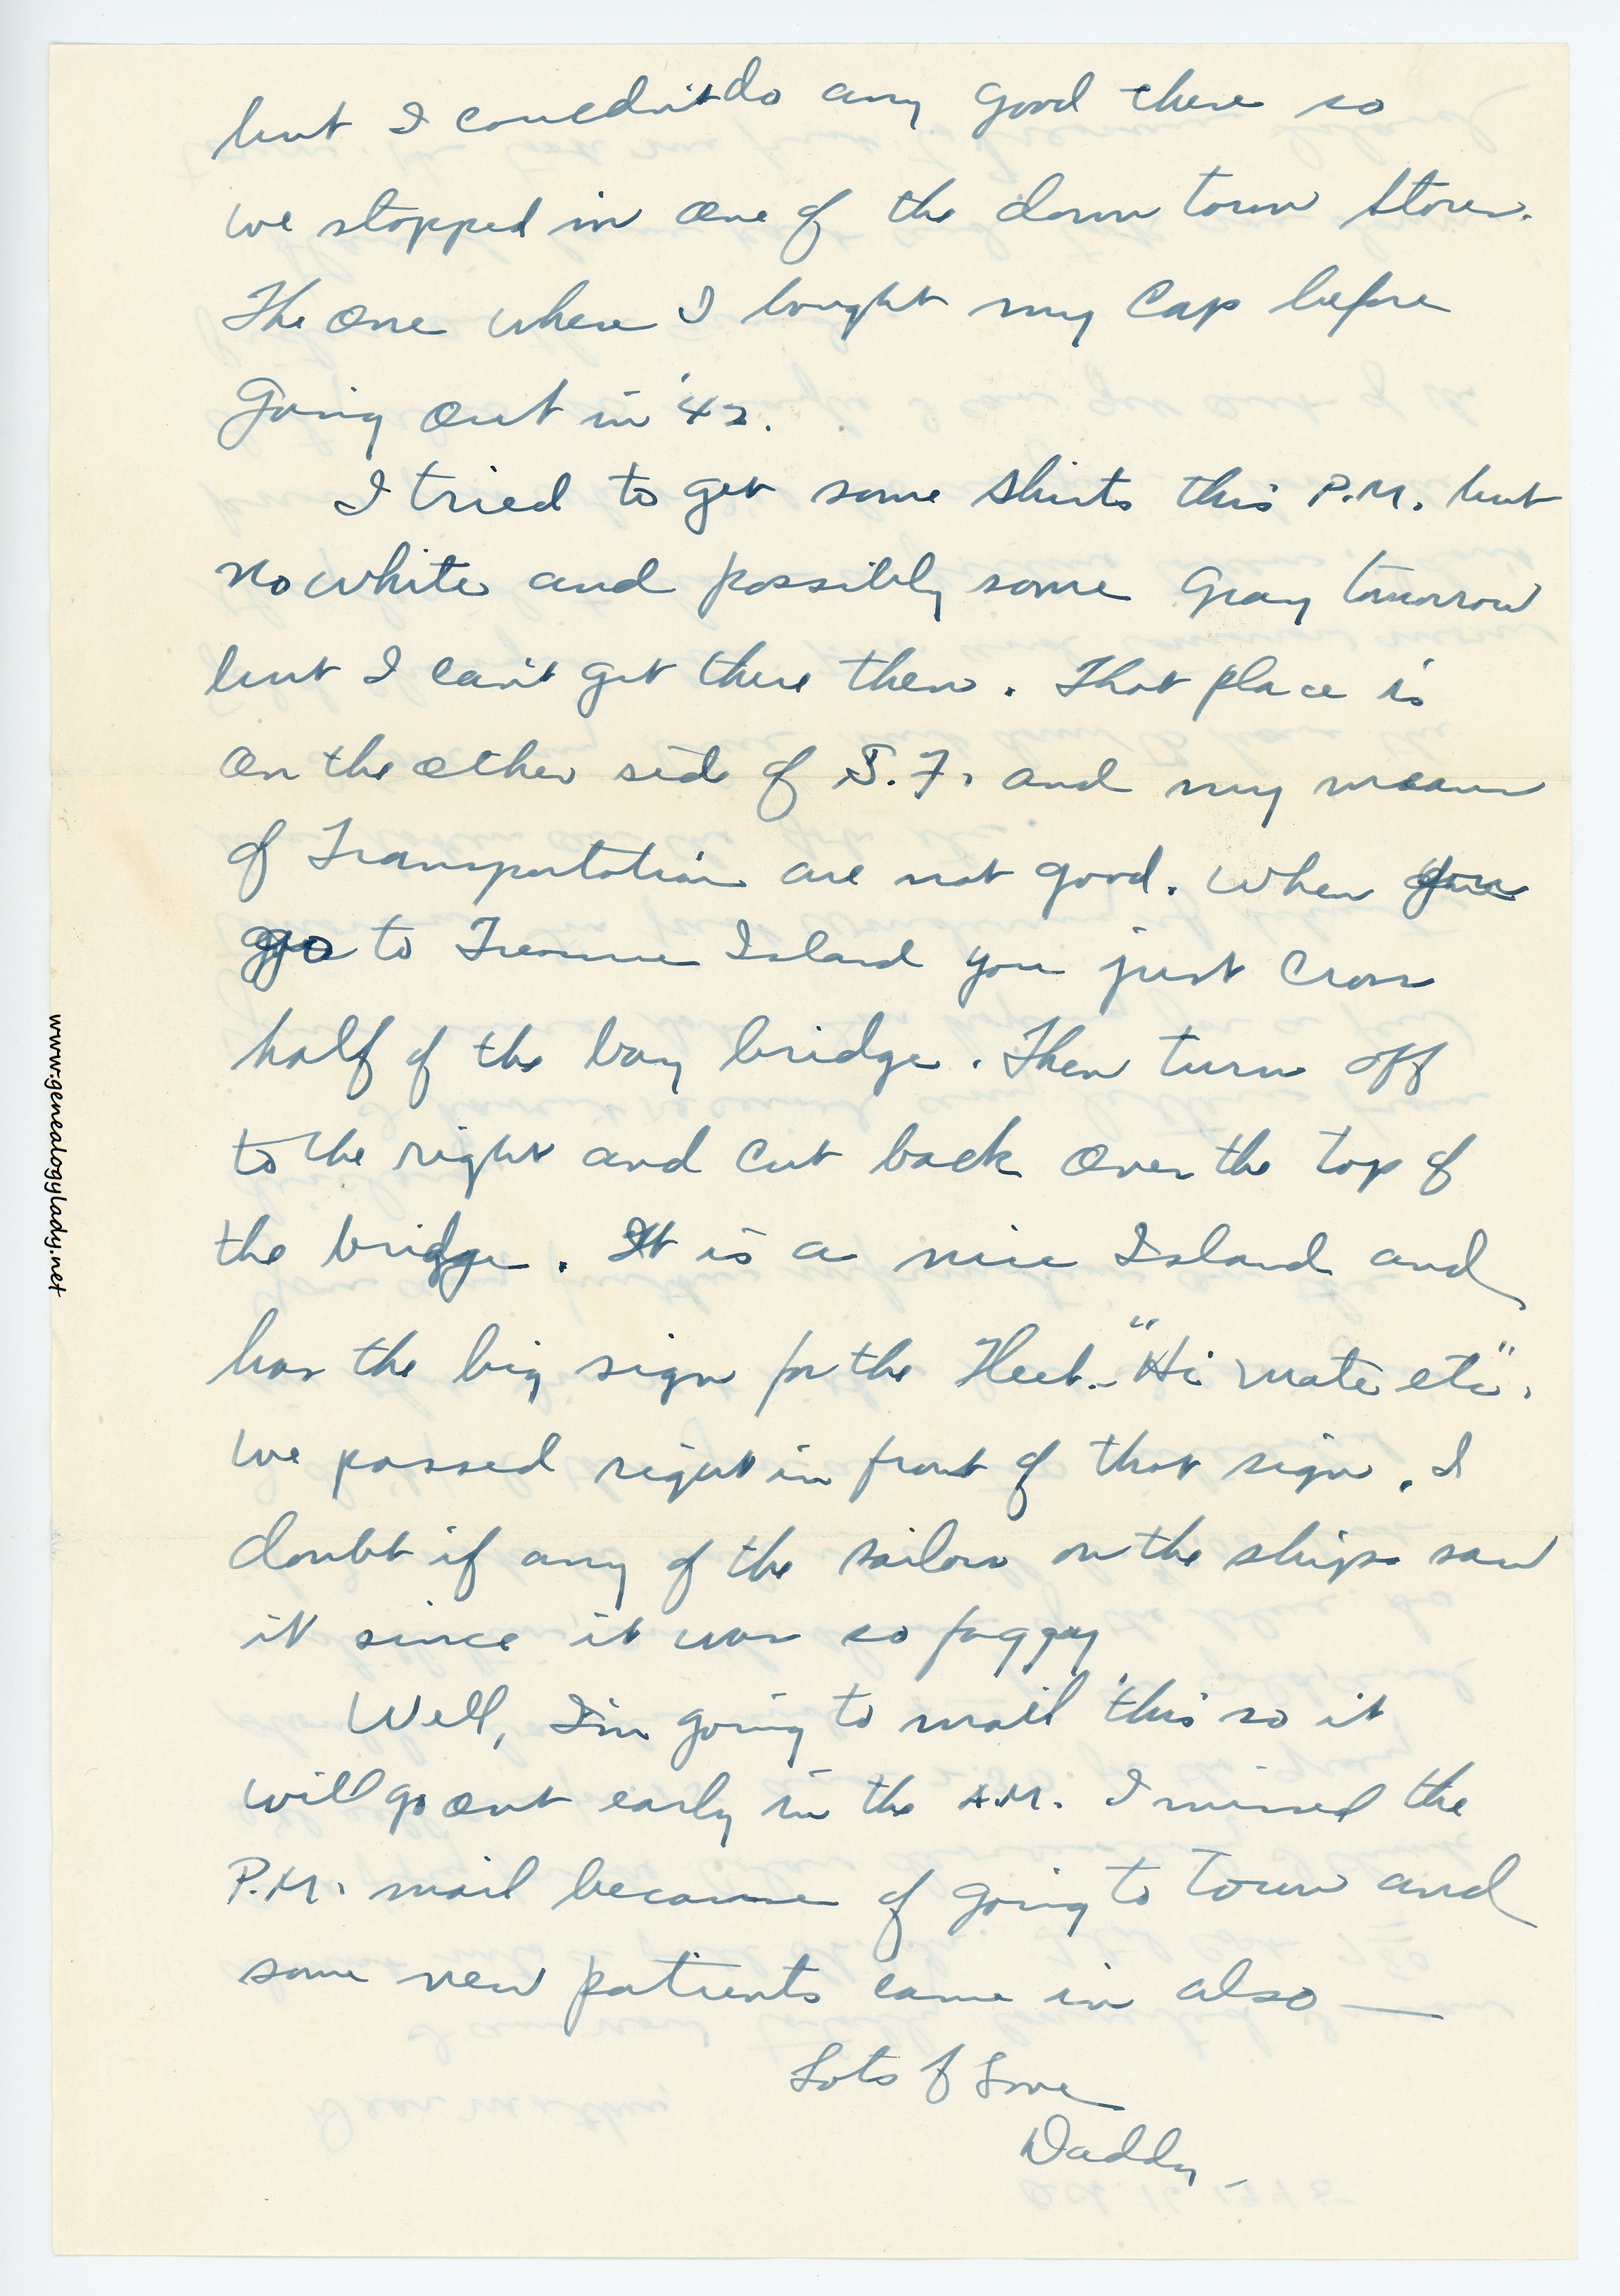 but I couldn't do any good there so
we stopped in one of the down town stores.
The one where I bought my cap before
going out in '42.
I tried to get some shirts this P.M. but
no white and possibly some gray tomorrow
but I can't get there then. That place is
on the other side of S.F. and my means
of Transportation are not good. When you
go to Treasure Island you just cross
half of the bay bridge. Then turn off
to the right and cut back over the top of
the bridge. It is a nice Island and
has the big sign for the Fleet. - "Hi Mate etc".
We passed right in front of that sign. I
doubt if any of the sailors on the ships saw
it since it was so foggy
Well, I'm going to mail this so it
will go out early in the A.M. I missed the
P.M. mail because of going to town and
some new patients came in also —
Lots of Love
Daddy -
www.genealogylady.net